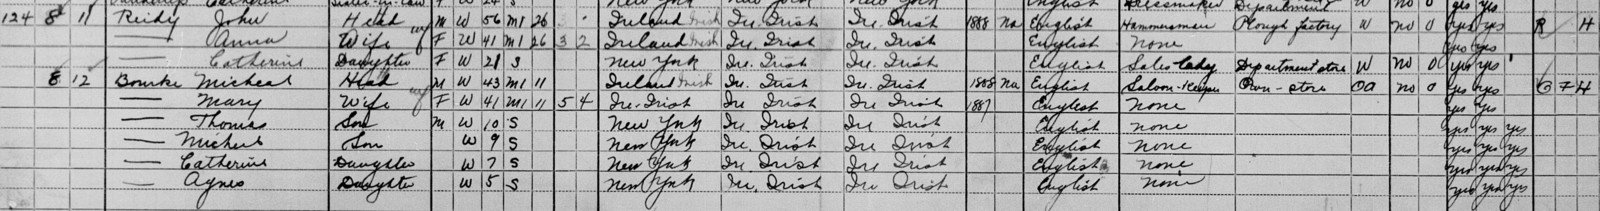 Catherine Sister-in-law F W 24 S New York New York New York English Dressmaker Department W no 0 yes yes
124 8 11 Reidy John Head M W 56 M1 26 Ireland Irish Ire. Irish Ire. Irish 1888 Na English Hammerman Plough factory W no 0 yes yes R H
— Anna Wife F W 41 M1 26 3 2 Ireland Irish Ire. Irish Ire. Irish English None yes yes
— Catherine Daughter F W 21 S New York Ire. Irish Ire. Irish English Sales-lady Department store W no 0 yes yes
8 12 Bourke Micheal Head M W 43 M1 11 Ireland Irish Ire. Irish Ire Irish 1888 Na English Saloon-Keeper Own-store OA no 0 yes yes O F H
— Mary Wife F W 41 M1 11 5 4 Ire-Irish Ire Irish Ire Irish 1887 English None yes yes
— Thomas Son M W 10 S New York Ire. Irish Ire Irish English none yes yes yes
— Micheal Son W 9 S New York Ire. Irish Ire. Irish English none yes yes yes
— Catherine Daughter W 7 S New York Ire. Irish Ire Irish English none yes yes yes
— Agnes Daughter W 5 S New York Ire. Irish Ire Irish English none yes yes yes